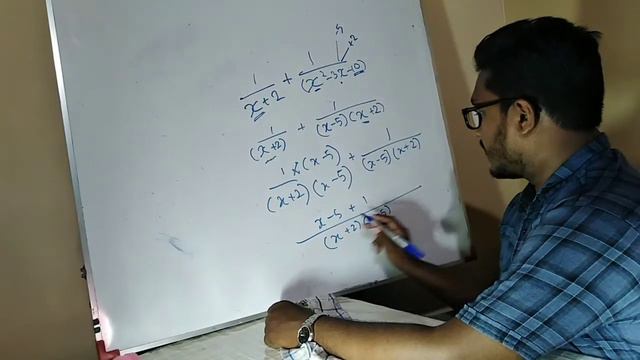 1/(x+2) + 1/(x²-3x-10)
1/(x+2) + 1/((x-5)(x+2))
1×(x-5)/((x+2)(x-5)) + 1/((x-5)(x+2))
(x-5+1)/((x+2)(x-5))